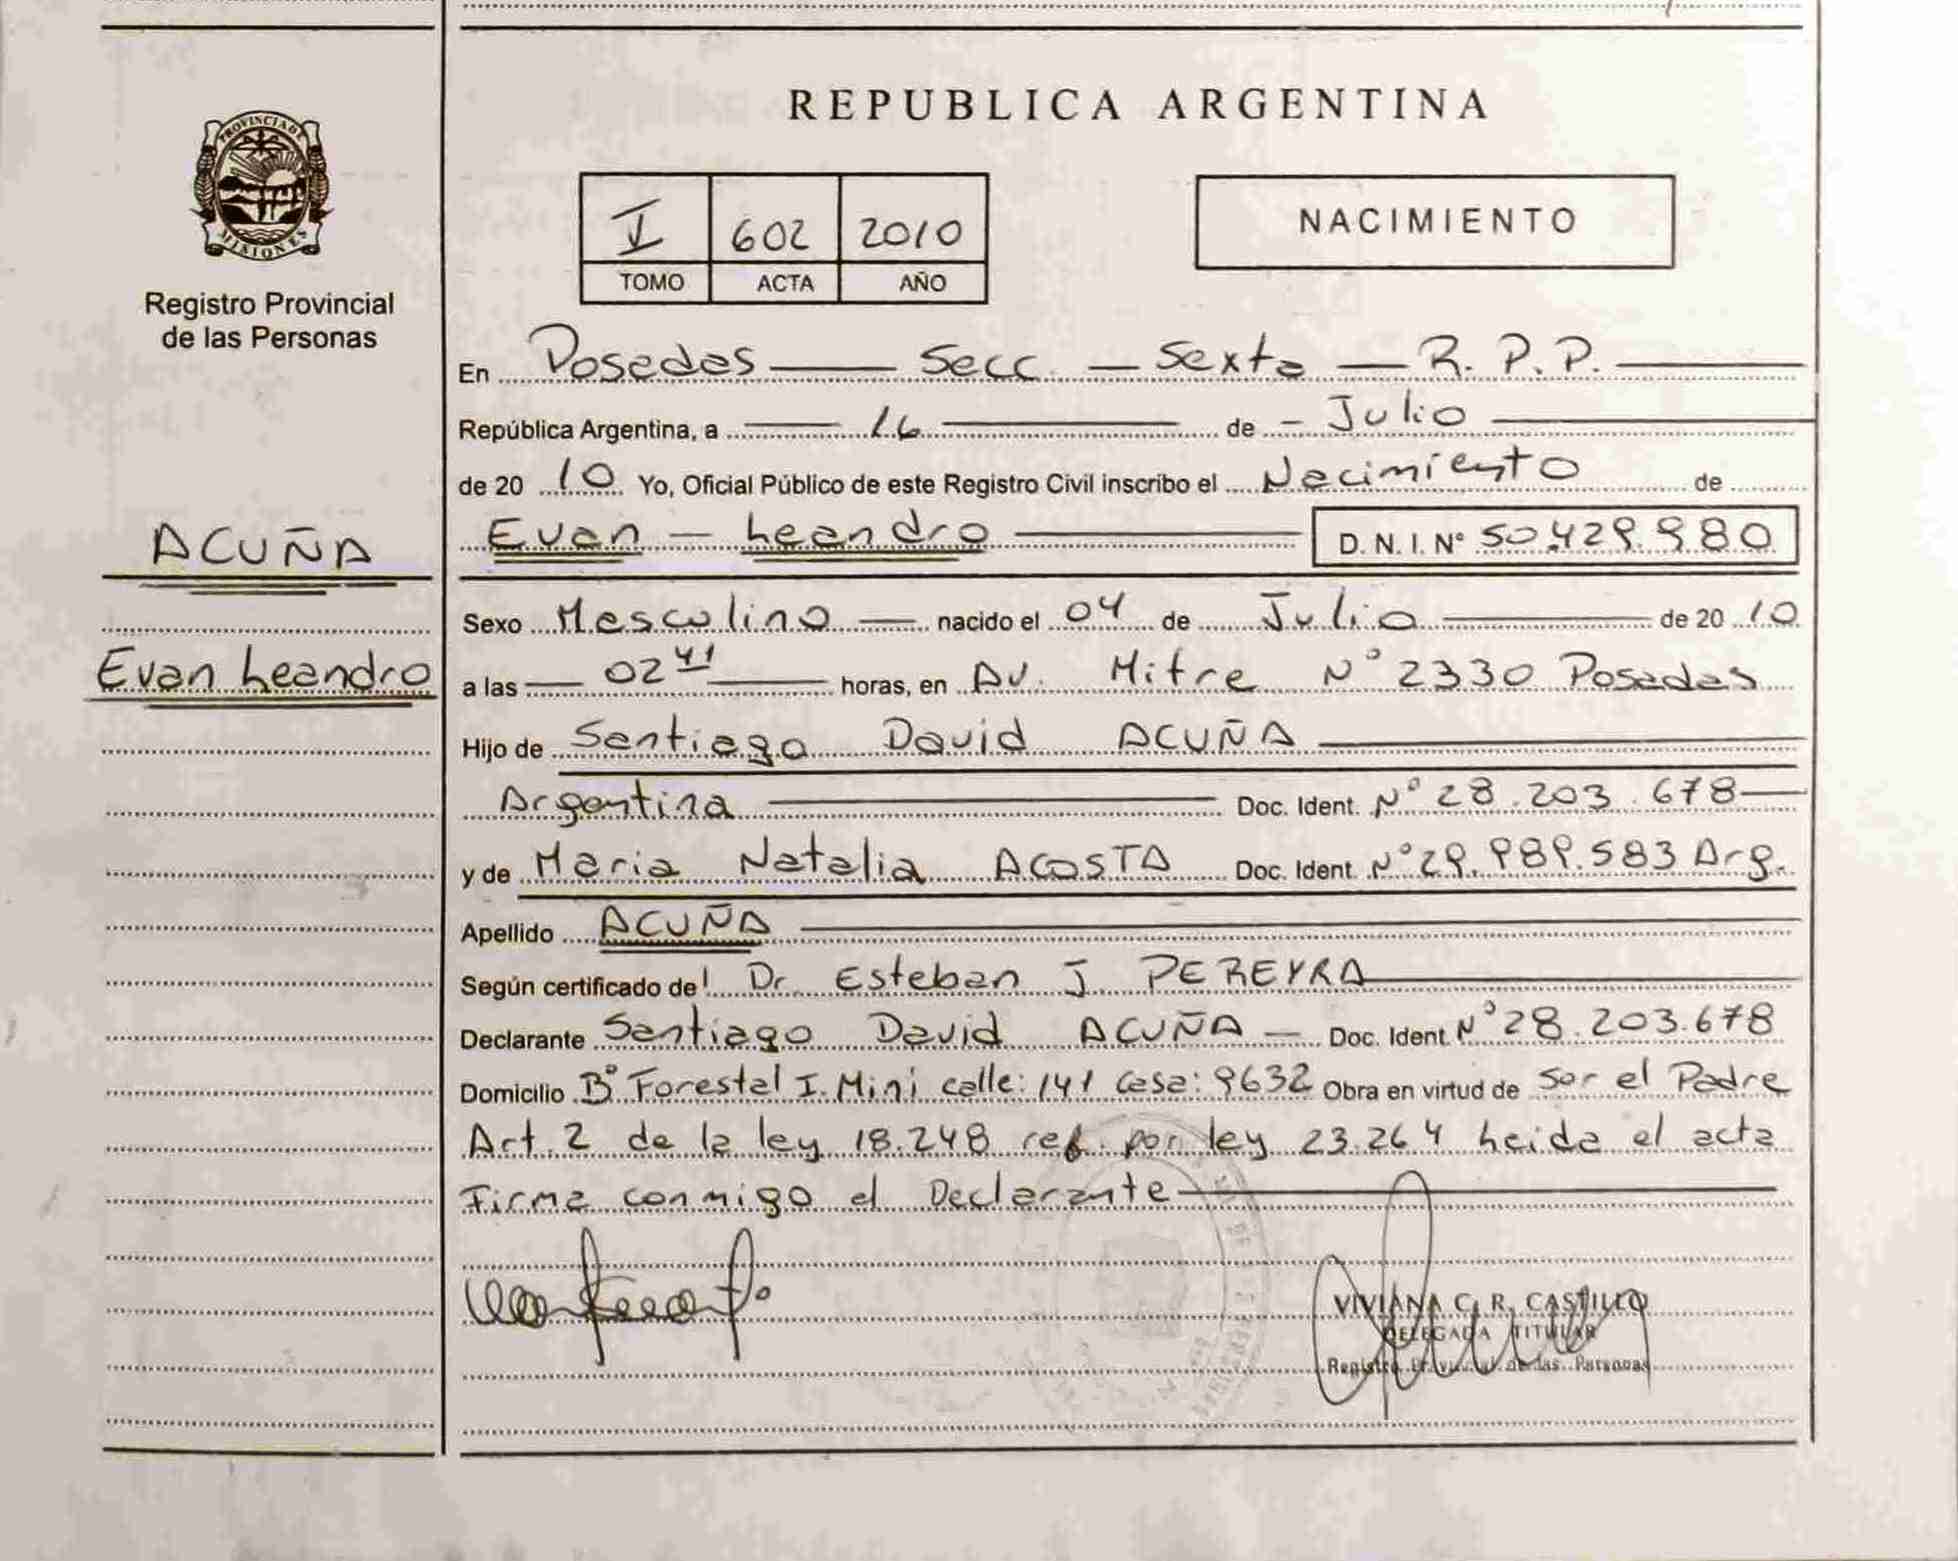 PROVINCIA DE
MISIONES
Registro Provincial
de las Personas
ACUÑA
Evan Leandro
REPUBLICA ARGENTINA
I 602 2010
TOMO ACTA AÑO
NACIMIENTO
En Posadas Secc. Sexta R. P. P.
República Argentina, a 16 de Julio
de 20 10 Yo, Oficial Público de este Registro Civil inscribo el Nacimiento de
Evan - Leandro D. N. I. Nº 50.429.980
Sexo Masculino nacido el 04 de Julio de 20 10
a las 02 41 horas, en Av. Mitre Nº 2330 Posadas
Hijo de Santiago David ACUÑA
Argentina Doc. Ident. Nº 28.203.678
y de Maria Natalia ACOSTA Doc. Ident. Nº 29.989.583 Arg.
Apellido ACUÑA
Según certificado del Dr. Esteban J. PEREYRA
Declarante Santiago David ACUÑA Doc. Ident. Nº 28.203.678
Domicilio Bº Forestal I. Mini calle: 141 Casa: 9632 Obra en virtud de ser el Padre
Art. 2 de la ley 18.248 ref. por ley 23.264 Leida el acta
Firma conmigo el Declarante
VIVIANA C. R. CASTILLO
DELEGADA TITULAR
Registro Provincial de las Personas